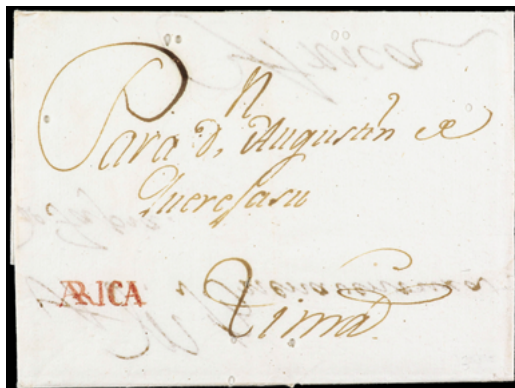 Para d,ⁿ Augustin de
Querejasu
ARICA
Lima